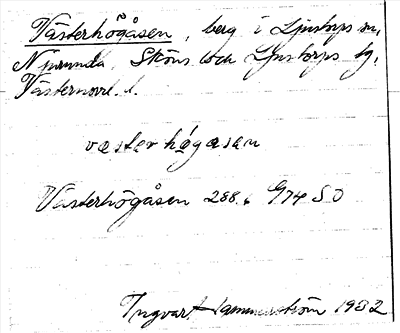 Västerhögåsen, berg i Ljustorps sn,
Njurunda, Sköns och Ljustorps tg,
Västernorrl. l.
västerhögåsen
Västerhögåsen 288.6 G74 SO
Ingvar Hammarström 1932